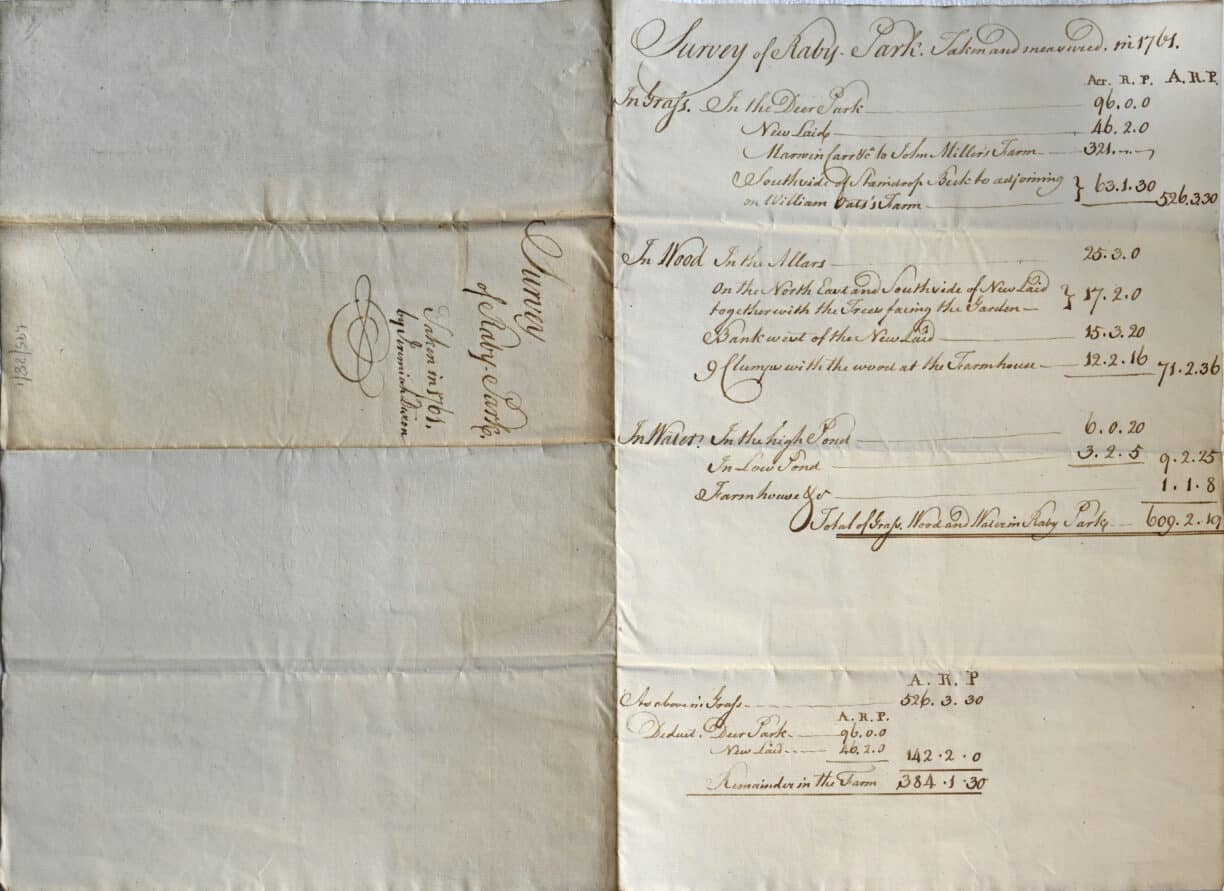 Survey
of Raby-Park.
Taken in 1761.
by Jeremiah Dixon
Survey of Raby-Park. Taken and measured. in 1761.
Acr. R. P. A. R. P.
In Grass. In the Deer Park 96. 0. 0
New Laid 46. 2. 0
Marwin Carr &c to John Miller's Farm 321. - -
Southside of Staindrop Beck to adjoining } 63. 1. 30
on William Oats's Farm 526. 3. 30
In Wood In the Allars 25. 3. 0
On the North East and Southside of New Laid } 17. 2. 0
together with the Trees facing the Garden
Bank west of the New Laid 15. 3. 20
9 Clumps with the wood at the Farmhouse 12. 2. 16 71. 2. 36
In Water. In the high Pond 6. 0. 20
In Low Pond 3. 2. 5 9. 2. 25
Farmhouse &c 1. 1. 8
Total of Grass, Wood and Water in Raby Park 609. 2. 19
A. R. P
As above in Grass 526. 3. 30
A. R. P.
Deduct. Deer Park 96. 0. 0
New Laid 46. 2. 0 142. 2. 0
Remainder in the Farm 384. 1. 30